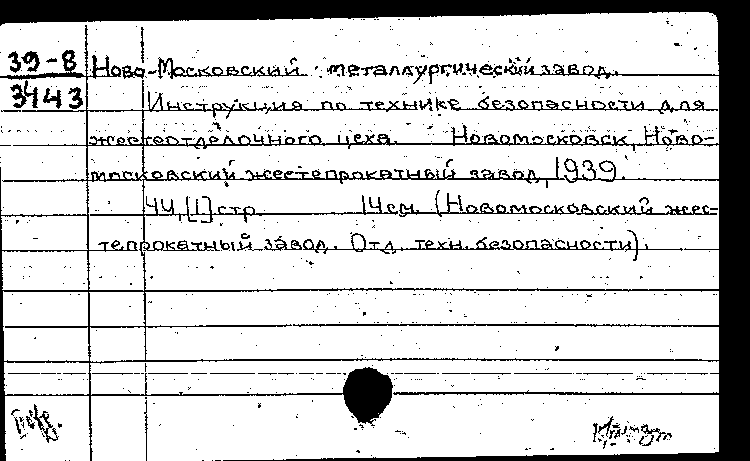 39-8 Ново-Московский металлургический завод.
3443 Инструкция по технике безопасности для
жестеотделочного цеха. Новомосковск, Ново-
московский жестепрокатный завод, 1939.
44,[1] стр. 14 см. (Новомосковский жес-
тепрокатный завод. Отд. техн. безопасности).